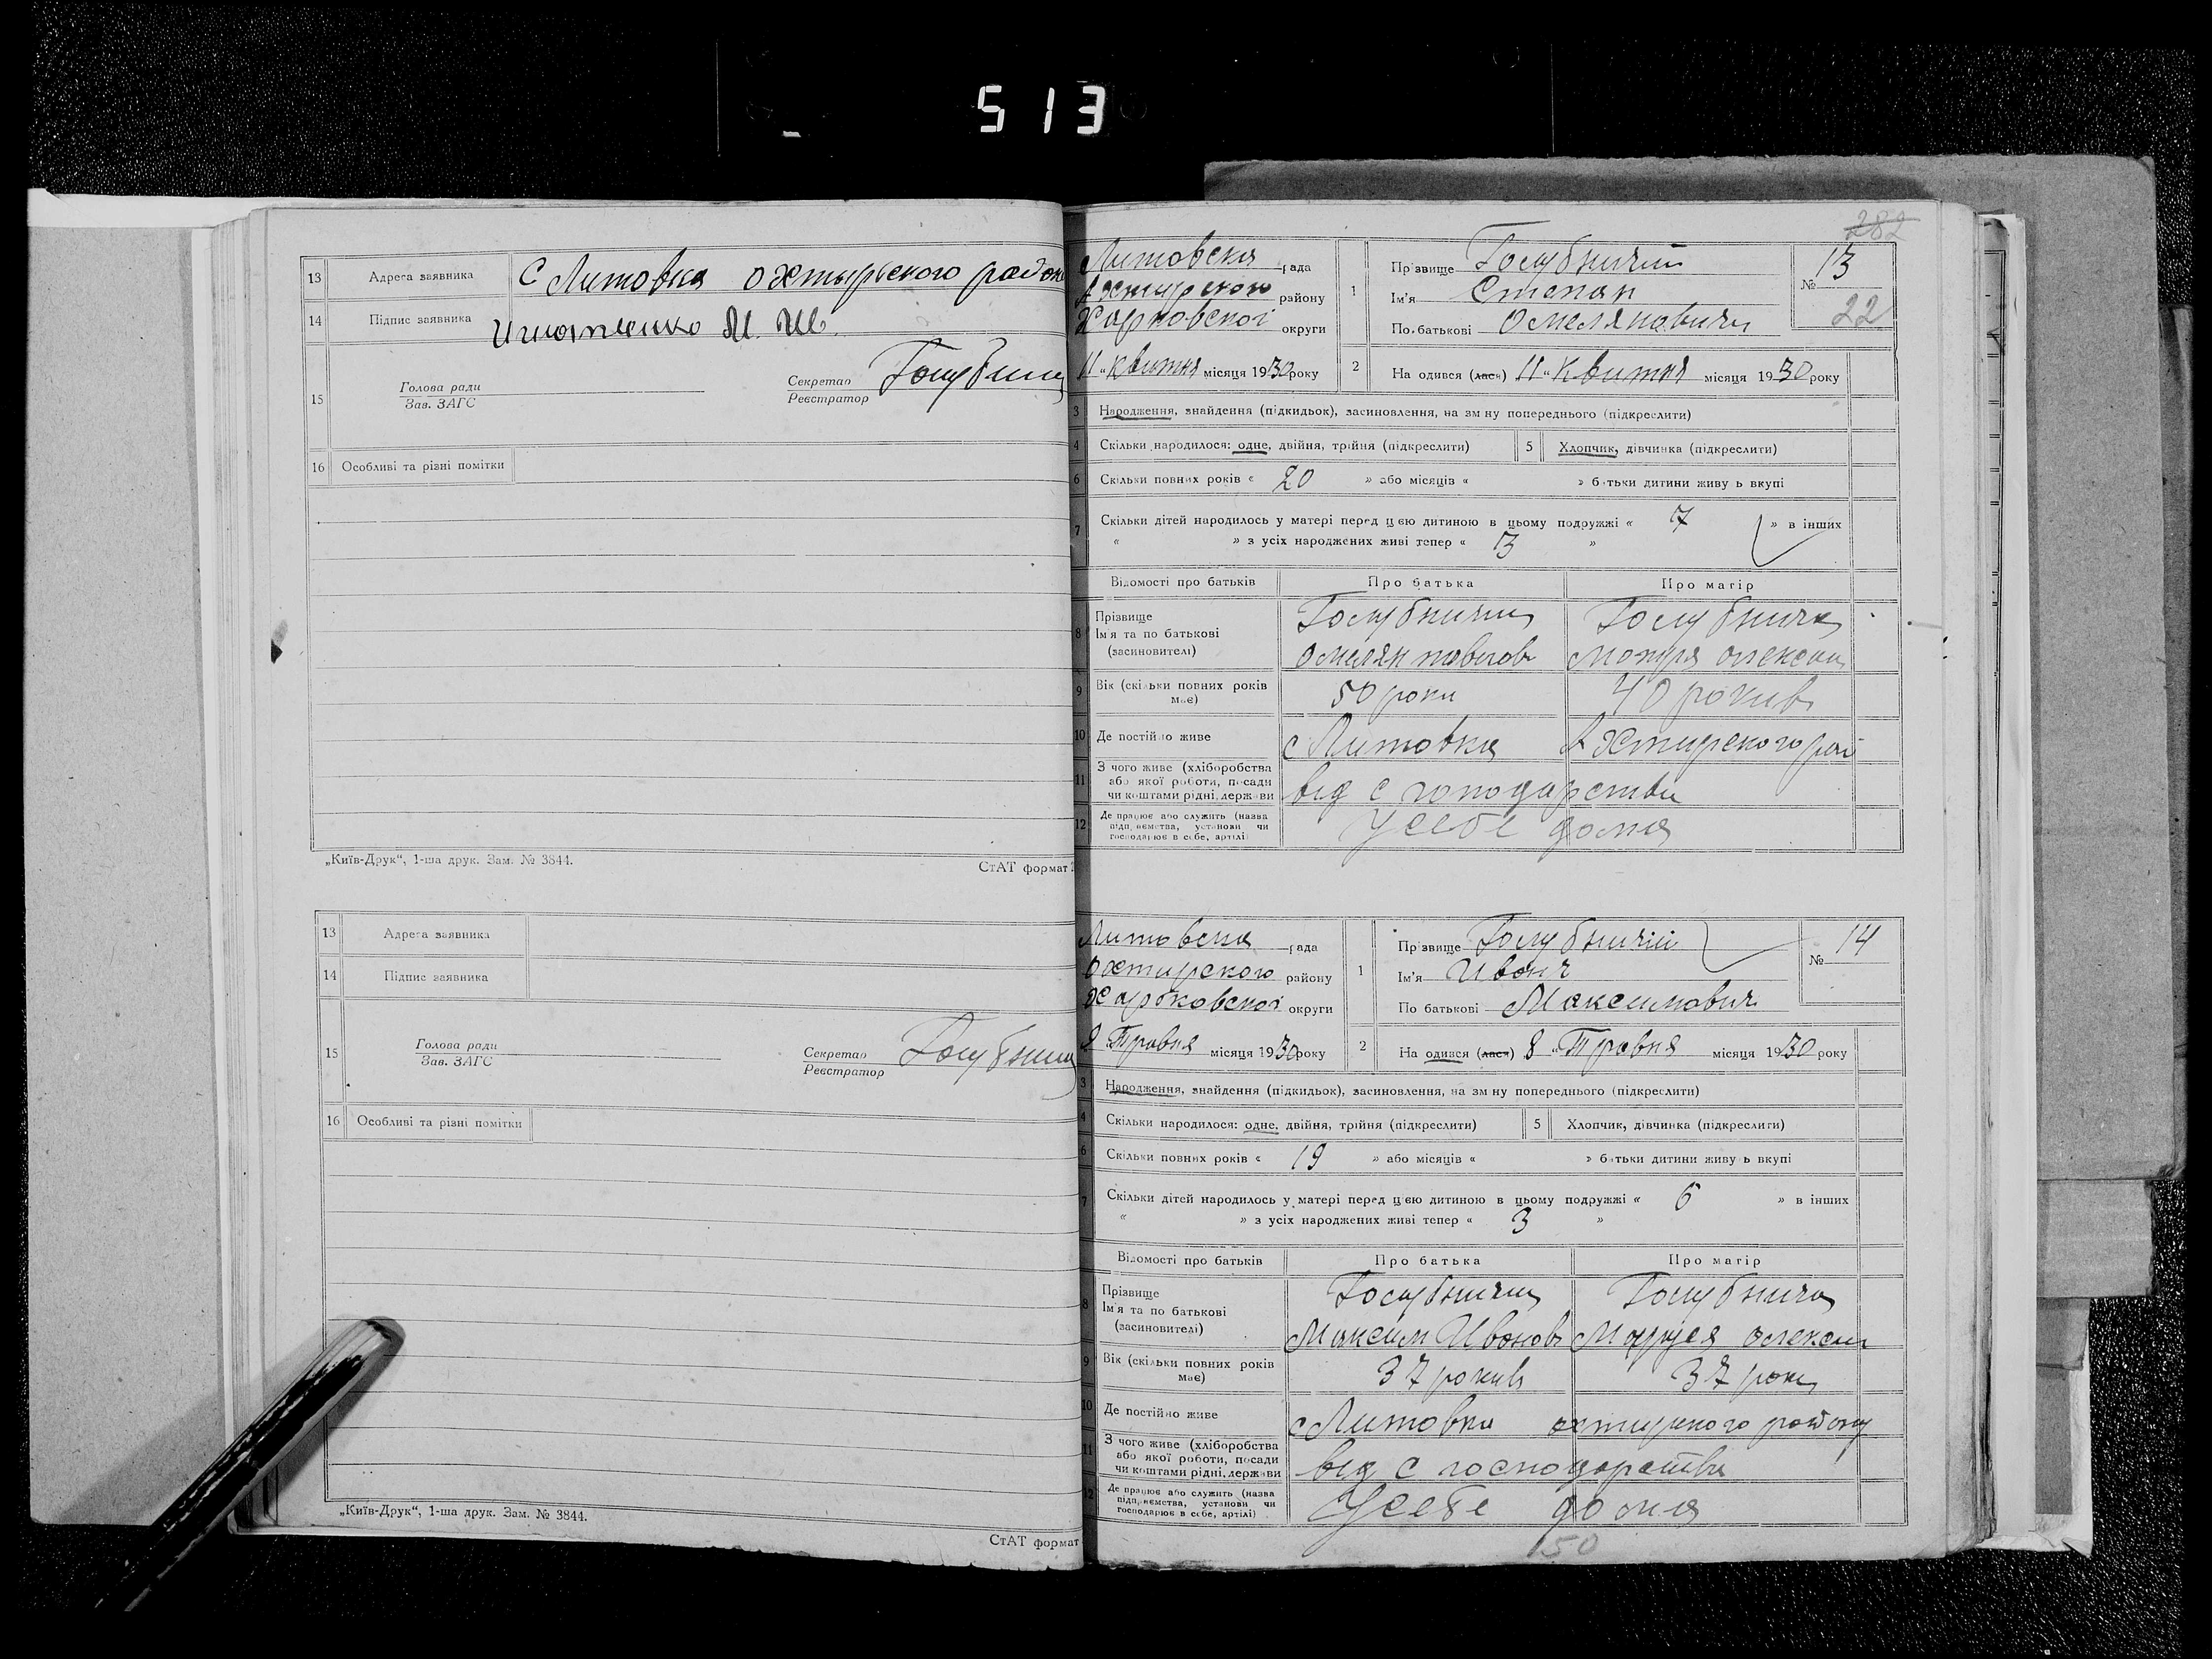 513
13 Адреса заявника С Литовка охтырьского район
14 Підпис заявника Игнатченко М. Ш.
15 Голова ради
Зав. ЗАГС
Секретар
Реєстратор
Голубнич
16 Особливі та різні помітки
„Київ-Друк“, 1-ша друк. Зам. № 3844.
СтАТ формат
13 Адреса заявника
14 Підпис заявника
15 Голова ради
Зав. ЗАГС
Секретар
Реєстратор
Голубнич
16 Особливі та різні помітки
„Київ-Друк“, 1-ша друк. Зам. № 3844.
СтАТ формат
282
Литовска рада
Ахтирского району
Харковскої округи
11 „Квитня місяця 1930 року
1 Прізвище Голубничий
Ім'я Степан
По батькові Омелянович
№ 13
22
2 На одився (лась) 11 „Квитня місяця 1930 року
3 Народження, знайдення (підкидьок), засиновлення, на зміну попереднього (підкреслити)
4 Скільки народилося: одне, двійня, трійня (підкреслити) 5 Хлопчик, дівчинка (підкреслити)
6 Скільки повних років « 20 » або місяців « » батьки дитини живуть вкупі
7 Скільки дітей народилось у матері перед цією дитиною в цьому подружжі « 7 » в інших
« » з усіх народжених живі тепер « 3 »
Відомості про батьків Про батька Про матір
8 Прізвище
Ім'я та по батькові
(засиновителі)
Голубничи Голубнича
Омелян Мотря олексии
9 Вік (скільки повних років має) 50 роки 40 рокив
10 Де постійно живе с Литовка Ахтирского рай
11 З чого живе (хліборобства
або якої роботи, посади
чи коштами рідні, держави
від с господарства
12 Де працює або служить (назва
підприємства, установи чи
господарює в себе, артілі)
У себе дома
Литовска рада
охтирского району
Харьковскої округи
8 Травня місяця 1930 року
1 Прізвище Голубничій
Ім'я Иван
По батькові Максимович
№ 14
2 На одився (лася) 8 „Травня місяця 1930 року
3 Народження, знайдення (підкидьок), засиновлення, на зміну попереднього (підкреслити)
4 Скільки народилося: одне, двійня, трійня (підкреслити) 5 Хлопчик, дівчинка (підкреслити)
6 Скільки повних років « 19 » або місяців « » батьки дитини живуть вкупі
7 Скільки дітей народилось у матері перед цією дитиною в цьому подружжі « 6 » в інших
« » з усіх народжених живі тепер « 3 »
Відомості про батьків Про батька Про матір
8 Прізвище
Ім'я та по батькові
(засиновителі)
Голубничи Голубнича
Максим Иванов Маруся олексии
9 Вік (скільки повних років має) 37 рокив 37 роки
10 Де постійно живе с Литовка охтирского району
11 З чого живе (хліборобства
або якої роботи, посади
чи коштами рідні, держави
від с господарства
12 Де працює або служить (назва
підприємства, установи чи
господарює в себе, артілі)
У себе дома
150